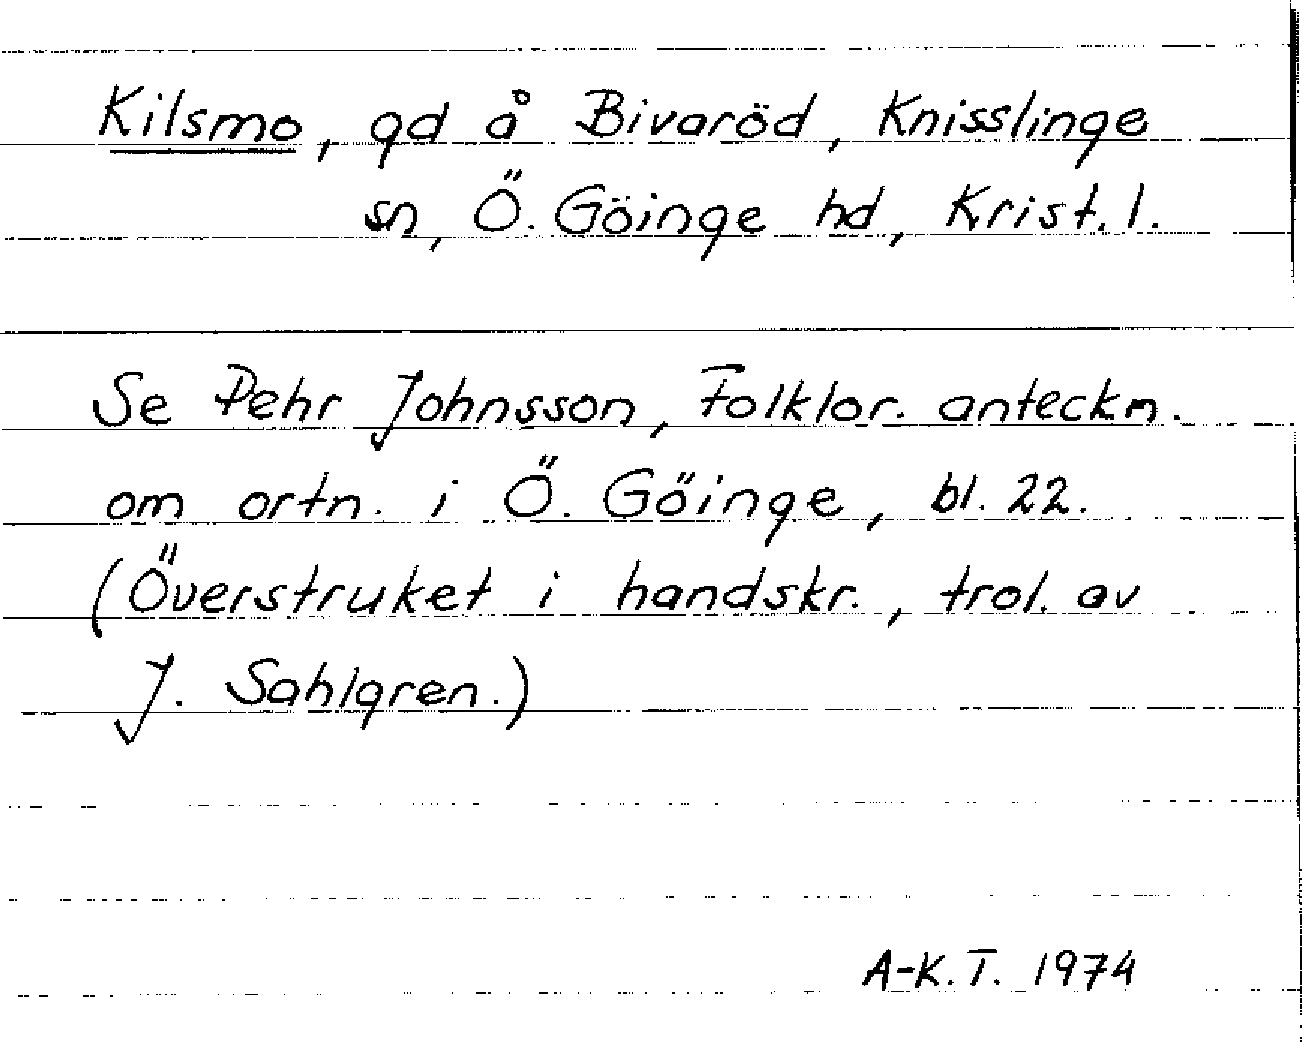 Kilsmo, gd å Bivaröd, Knisslinge
sn, Ö. Göinge hd, Krist. l.
Se Pehr Johnsson, Folklor. anteckn.
om ortn. i Ö. Göinge, bl. 22.
(Överstruket i handskr., trol. av
J. Sahlgren.)
A-K.T. 1974